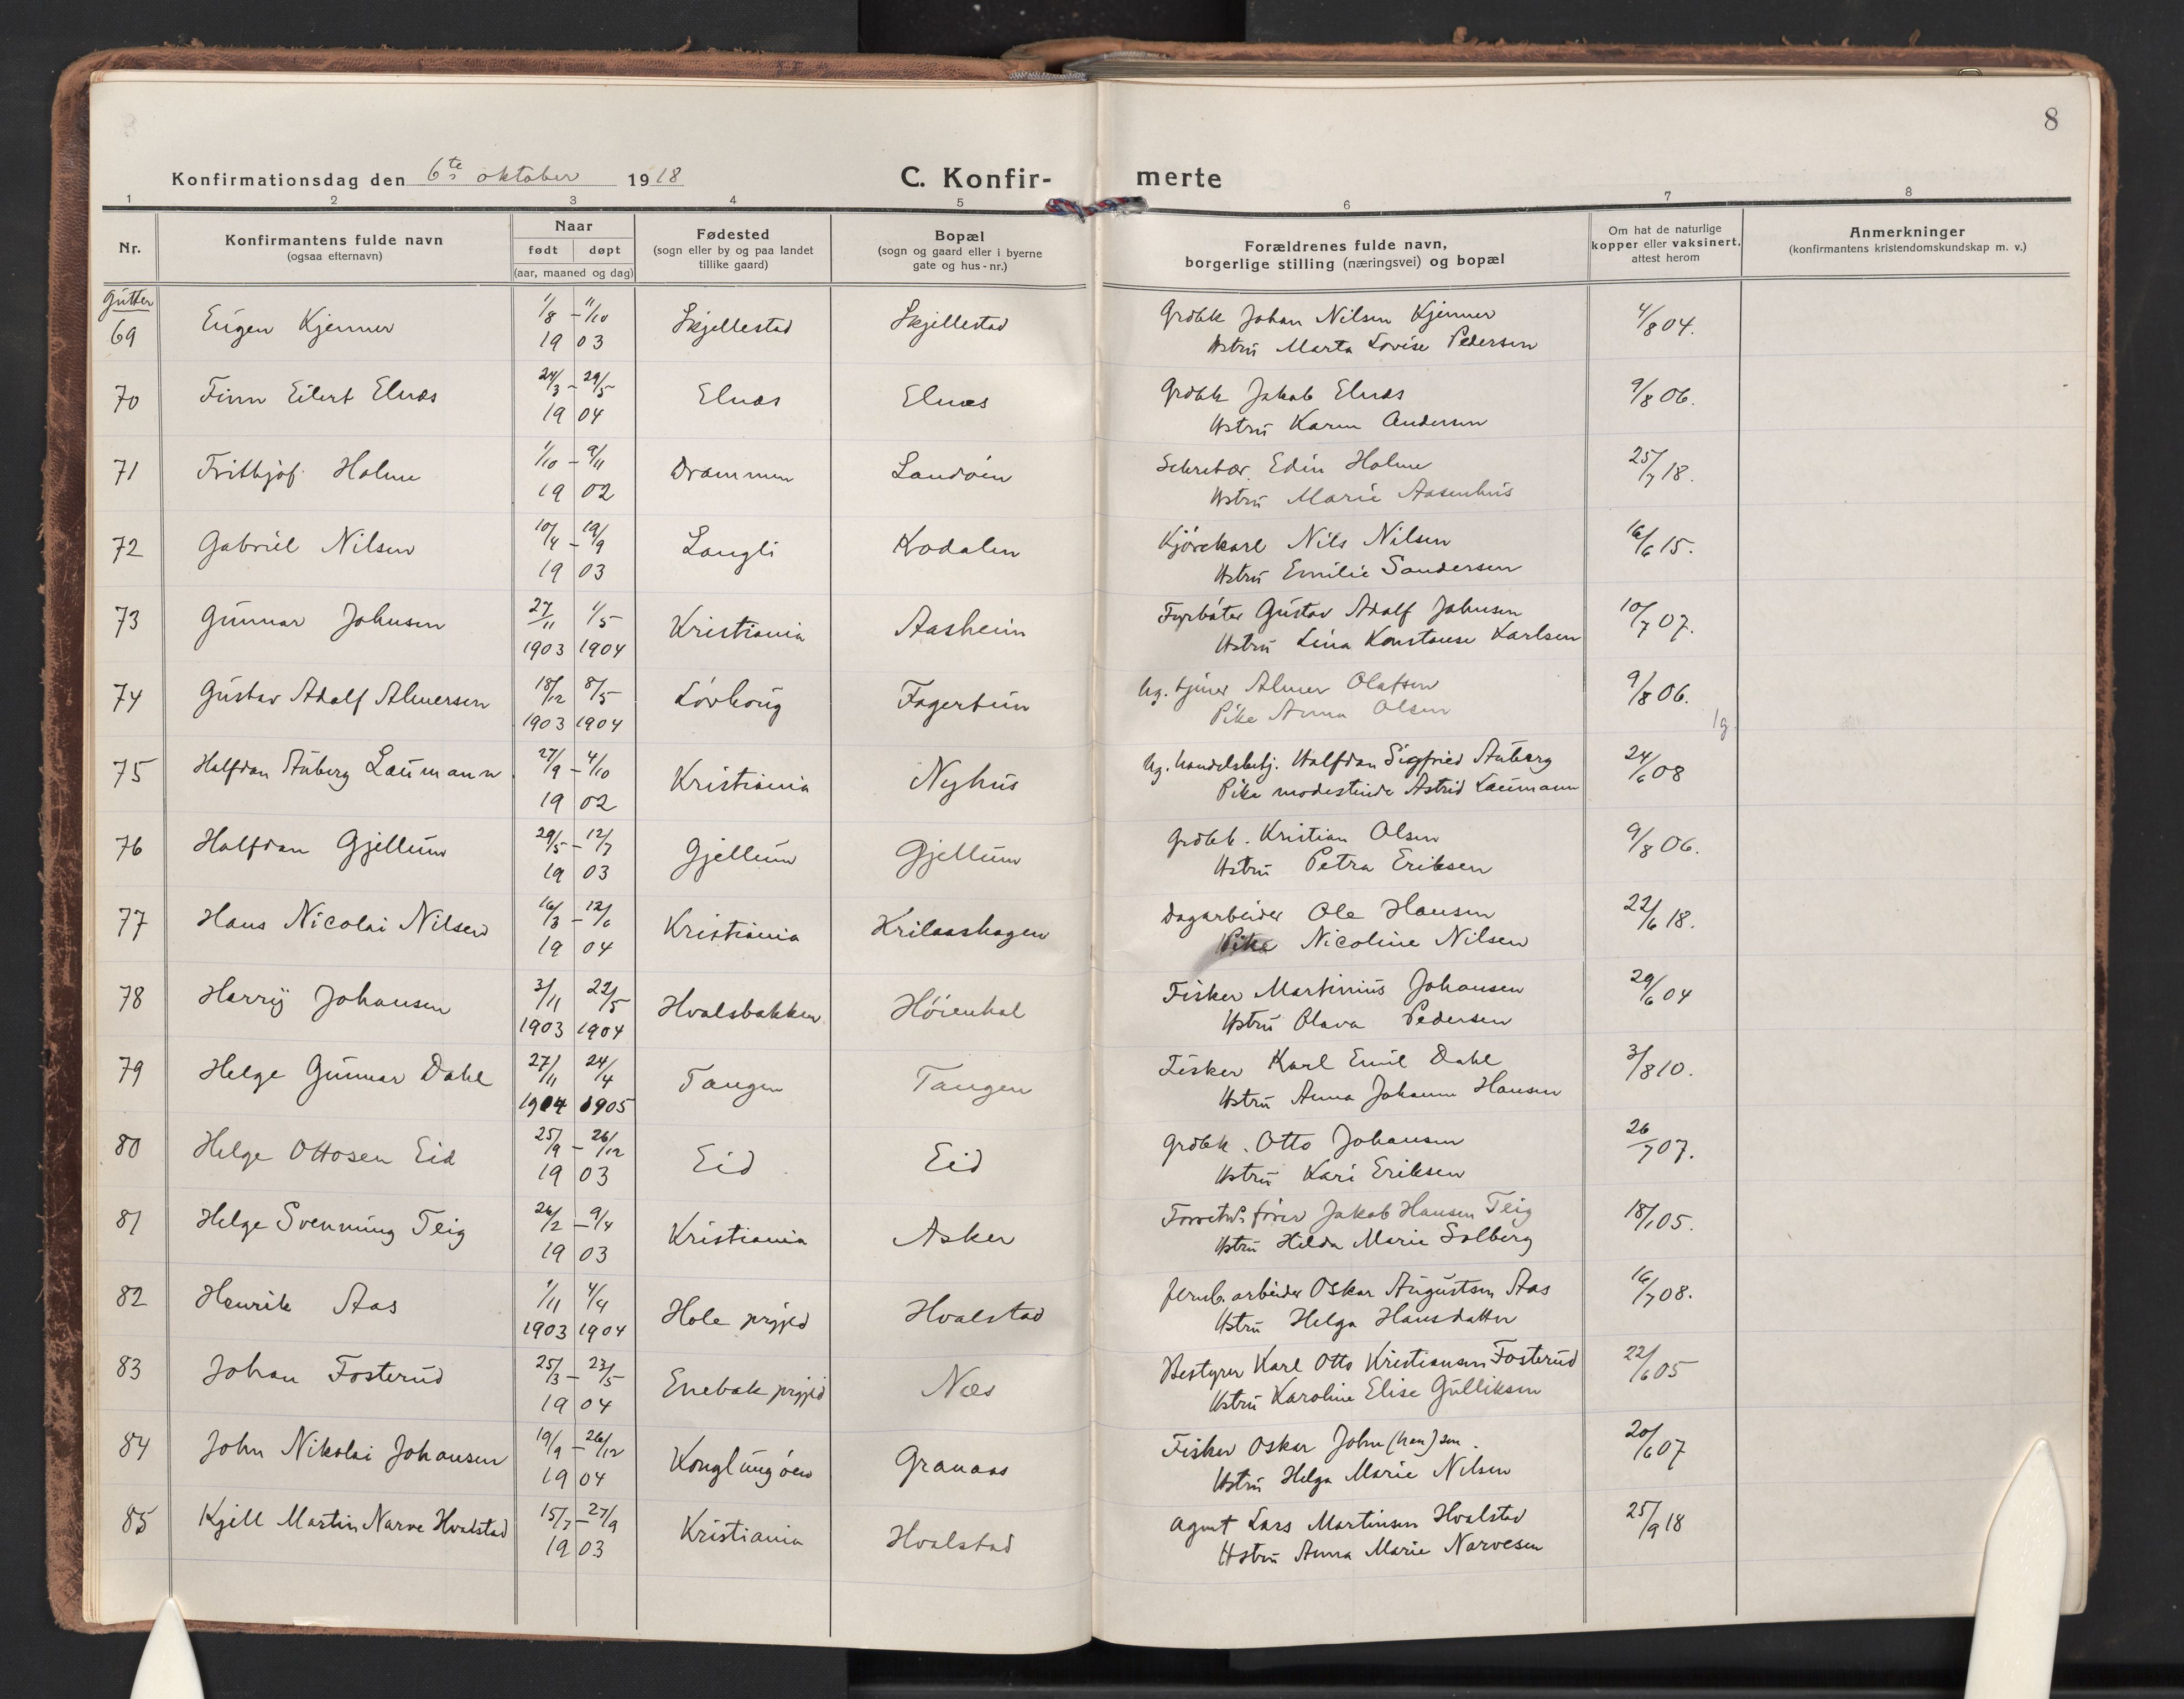 8
Konfirmationsdag den 6te oktober 1918
C. Konfirmerte
1 2 3 4 5 6 7 8
Nr.
Konfirmantens fulde navn
(ogsaa efternavn)
Naar
født døpt
(aar, maaned og dag)
Fødested
(sogn eller by og paa landet
tillike gaard)
Bopæl
(sogn og gaard eller i byerne
gate og hus-nr.)
Forældrenes fulde navn,
borgerlige stilling (næringsvei) og bopæl
Om hat de naturlige
kopper eller vaksinert,
attest herom
Anmerkninger
(konfirmantens kristendomskundskap m. v.)
Gutter
69 Eugen Kjenner 1/8 – 11/10 1903 Skjellestad Skjellestad Grdbk Johan Nilsen Kjenner 4/8 04.
Hstru Marta Lovise Pedersen
70 Finn Eilert Elnæs 24/3 – 29/5 1904 Elnæs Elnæs Grdbk Jakob Elnæs 9/8 06.
Hstru Karen Andersen
71 Frithjof Holme 1/10 – 9/11 1902 Drammen Landøen Sekretær Edin Holme 25/7 18.
Hstru Marie Aasenhus
72 Gabriel Nilsen 10/4 – 19/9 1903 Langli Kodalen Kjørekarl Nils Nilsen 16/6 15.
Hstru Emilie Sandersen
73 Gunnar Johnsen 27/11 1903 1/5 1904 Kristiania Aasheim Fyrbøter Gustav Adolf Johnsen 10/7 07.
Hstru Lina Konstanse Karlsen
74 Gustav Adolf Almersen 18/12 1903 8/5 1904 Løvhoug Fagertun Ug. tjener Almer Olafsen 9/8 06.
Pike Anna Olsen
75 Halfdan Auberg Laumann 27/9 – 4/10 1902 Kristiania Nyhus Ug. handelsbetj. Halfdan Sigfried Auberg 24/6 08
Pike modestinde Astrid Laumann
76 Halfdan Gjellum 29/5 – 12/7 1903 Gjellum Gjellum Grdbk. Kristian Olsen 9/8 06.
Hstru Petra Eriksen
77 Hans Nicolai Nilsen 16/3 – 12/6 1904 Kristiania Krilaashagen Dagarbeider Ole Hansen 22/6 18.
Pike Nicoline Nilsen
78 Harry Johansen 3/11 1903 22/5 1904 Hvalsbakken Høienhal Fisker Martinius Johansen 29/6 04
Hstru Olava Pedersen
79 Helge Gunnar Dahl 27/11 1904 24/4 1905 Tangen Tangen Fisker Karl Emil Dahl 3/8 10.
Hstru Anna Johanne Hansen
80 Helge Ottosen Eid 25/9 – 26/12 1903 Eid Eid Grdbk. Otto Johansen 26/7 07.
Hstru Kari Eriksen
81 Helge Svenning Teig 26/2 – 9/4 1903 Kristiania Asker Jakob Hansen Teig 18/1 05.
Hstru Hilda Marie Solberg
82 Henrik Aas 1/11 1903 4/4 1904 Hole prgjld Hvalstad Jernb.arbeider Oskar Augustsen Aas 16/7 08.
Hstru Helga Hansdatter
83 Johan Fosterud 25/3 – 23/5 1904 Enebak prgjld Næs Bestyrer Karl Otto Kristiansen Fosterud 22/6 05
Hstru Karoline Elise Gulliksen
84 John Nikolai Johansen 19/9 – 26/12 1904 Konglungøen Granaas Fisker Oskar John(han)sen. 20/6 07
Hstru Helga Marie Nilsen
85 Kjell Martin Narve Hvalstad 15/7 – 27/9 1903 Kristiania Hvalstad Agent Lars Martinsen Hvalstad 25/9 18
Hstru Anna Marie Narvesen